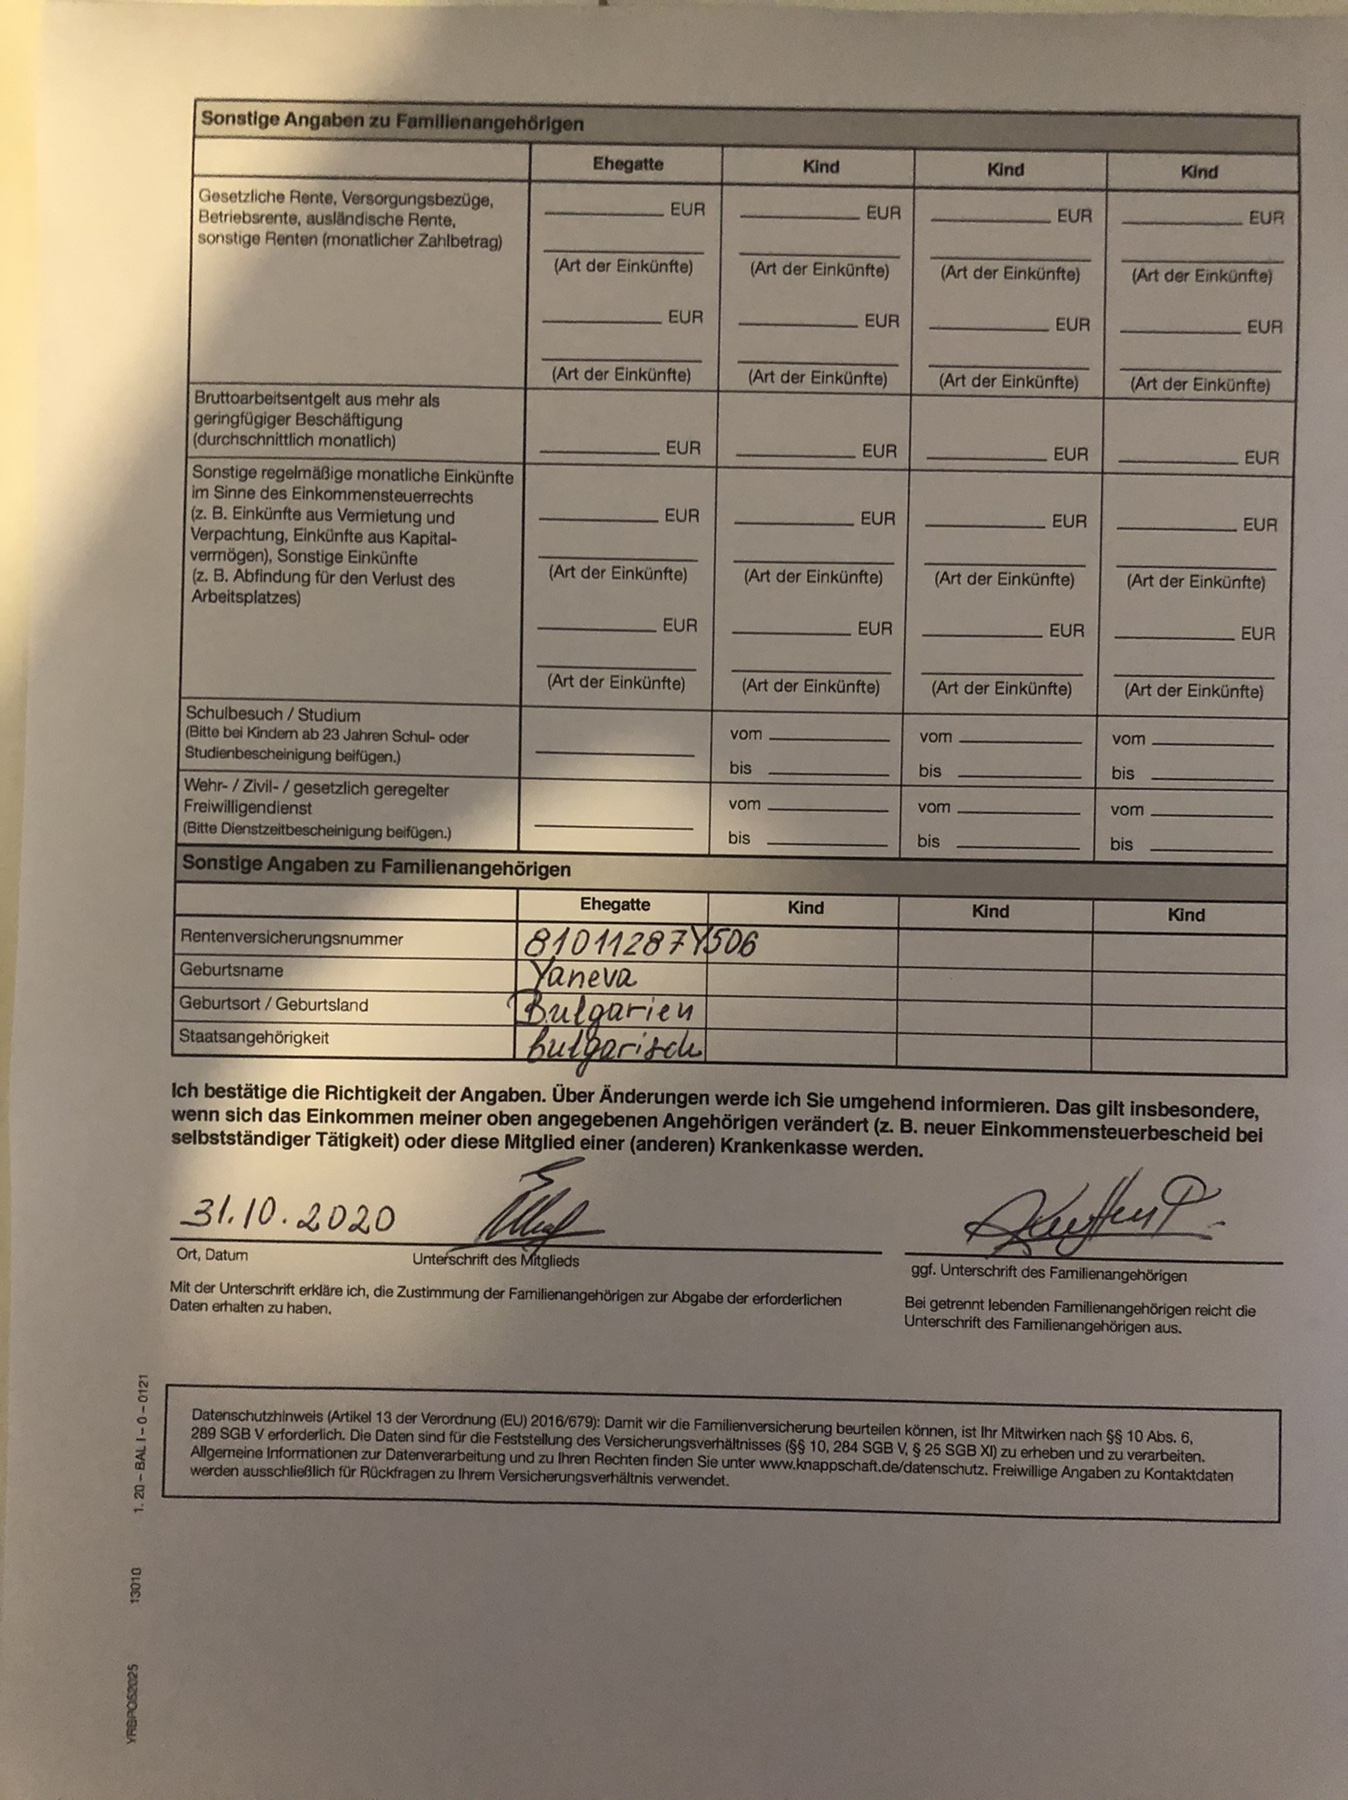 Sonstige Angaben zu Familienangehörigen
Ehegatte Kind Kind Kind
Gesetzliche Rente, Versorgungsbezüge,
Betriebsrente, ausländische Rente,
sonstige Renten (monatlicher Zahlbetrag)
EUR EUR EUR EUR
(Art der Einkünfte) (Art der Einkünfte) (Art der Einkünfte) (Art der Einkünfte)
EUR EUR EUR EUR
(Art der Einkünfte) (Art der Einkünfte) (Art der Einkünfte) (Art der Einkünfte)
Bruttoarbeitsentgelt aus mehr als
geringfügiger Beschäftigung
(durchschnittlich monatlich)
EUR EUR EUR EUR
Sonstige regelmäßige monatliche Einkünfte
im Sinne des Einkommensteuerrechts
(z. B. Einkünfte aus Vermietung und
Verpachtung, Einkünfte aus Kapital-
vermögen), Sonstige Einkünfte
(z. B. Abfindung für den Verlust des
Arbeitsplatzes)
EUR EUR EUR EUR
(Art der Einkünfte) (Art der Einkünfte) (Art der Einkünfte) (Art der Einkünfte)
EUR EUR EUR EUR
(Art der Einkünfte) (Art der Einkünfte) (Art der Einkünfte) (Art der Einkünfte)
Schulbesuch / Studium
(Bitte bei Kindern ab 23 Jahren Schul- oder
Studienbescheinigung beifügen.)
vom vom vom
bis bis bis
Wehr- / Zivil- / gesetzlich geregelter
Freiwilligendienst
(Bitte Dienstzeitbescheinigung beifügen.)
vom vom vom
bis bis bis
Sonstige Angaben zu Familienangehörigen
Ehegatte Kind Kind Kind
Rentenversicherungsnummer 81011287Y506
Geburtsname Yaneva
Geburtsort / Geburtsland Bulgarien
Staatsangehörigkeit bulgarisch
Ich bestätige die Richtigkeit der Angaben. Über Änderungen werde ich Sie umgehend informieren. Das gilt insbesondere,
wenn sich das Einkommen meiner oben angegebenen Angehörigen verändert (z. B. neuer Einkommensteuerbescheid bei
selbstständiger Tätigkeit) oder diese Mitglied einer (anderen) Krankenkasse werden.
31.10.2020
Ort, Datum Unterschrift des Mitglieds
ggf. Unterschrift des Familienangehörigen
Mit der Unterschrift erkläre ich, die Zustimmung der Familienangehörigen zur Abgabe der erforderlichen
Daten erhalten zu haben.
Bei getrennt lebenden Familienangehörigen reicht die
Unterschrift des Familienangehörigen aus.
Datenschutzhinweis (Artikel 13 der Verordnung (EU) 2016/679): Damit wir die Familienversicherung beurteilen können, ist Ihr Mitwirken nach §§ 10 Abs. 6,
289 SGB V erforderlich. Die Daten sind für die Feststellung des Versicherungsverhältnisses (§§ 10, 284 SGB V, § 25 SGB XI) zu erheben und zu verarbeiten.
Allgemeine Informationen zur Datenverarbeitung und zu Ihren Rechten finden Sie unter www.knappschaft.de/datenschutz. Freiwillige Angaben zu Kontaktdaten
werden ausschließlich für Rückfragen zu Ihrem Versicherungsverhältnis verwendet.
13010 1. 20 – BAL I – 0 – 0121